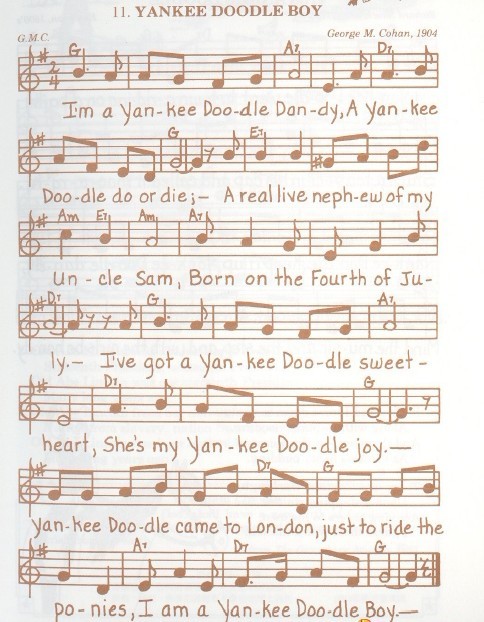 11. YANKEE DOODLE BOY
G.M.C. George M. Cohan, 1904
G A7 D7
2 4
I'm a Yan-kee Doo-dle Dan-dy, A Yan-kee
G E7
Doo-dle do or die;- A real live neph-ew of my
Am E7 Am A7
Un-cle Sam, Born on the Fourth of Ju-
D7 G A7
ly.- I've got a Yan-kee Doo-dle sweet-
D7 G
heart, She's my Yan-kee Doo-dle joy.-
D7 G
Yan-kee Doo-dle came to Lon-don, just to ride the
A7 D7 G
po-nies, I am a Yan-kee Doo-dle Boy.-